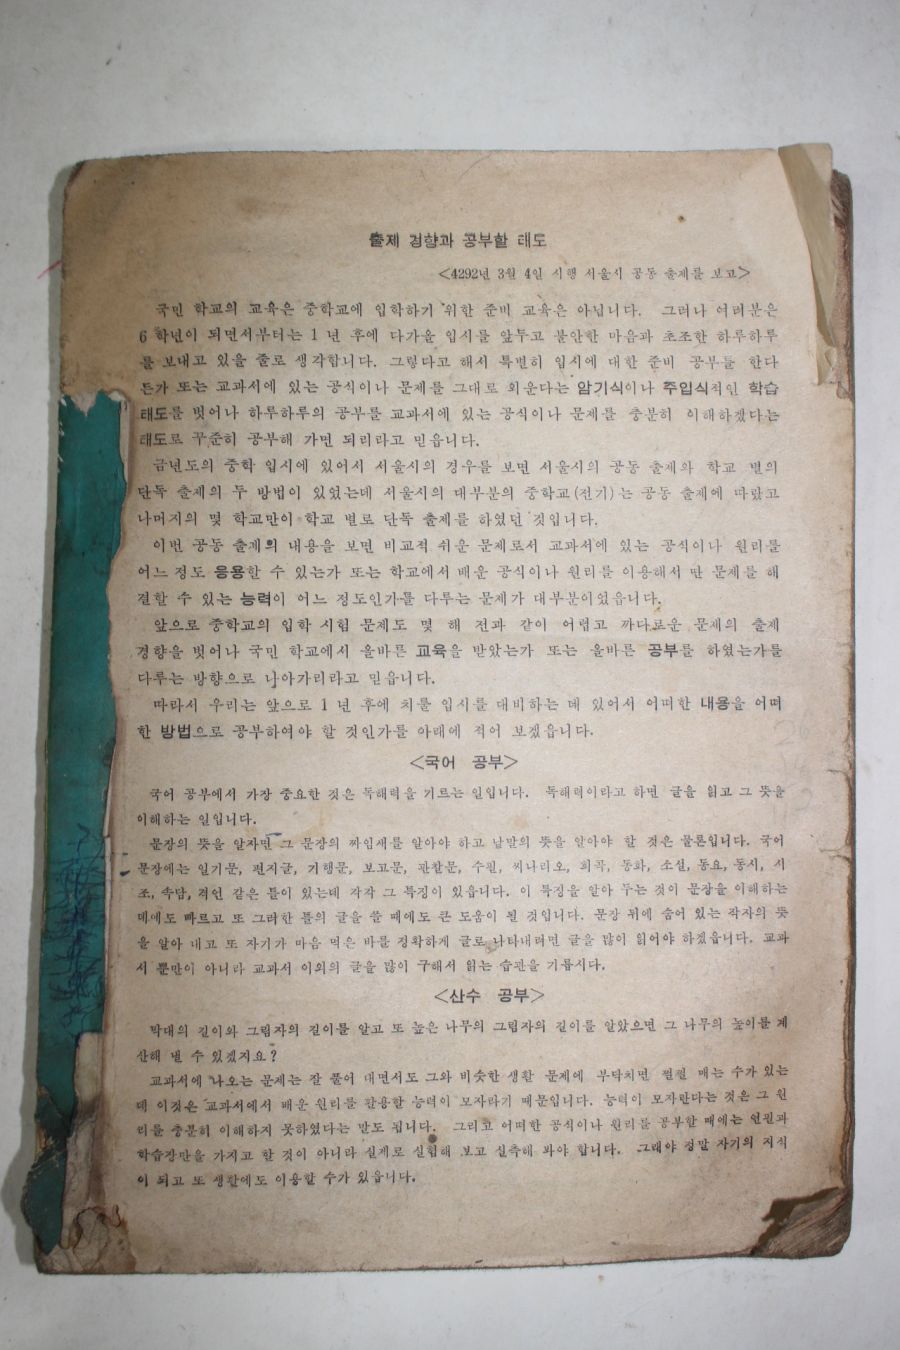 출제 경향과 공부할 태도
<4292년 3월 4일 시행 서울시 공동 출제를 보고>
국민 학교의 교육은 중학교에 입학하기 위한 준비 교육은 아닙니다. 그러나 여러분은
6 학년이 되면서부터는 1 년 후에 다가올 입시를 앞두고 불안한 마음과 초조한 하루하루
를 보내고 있을 줄로 생각합니다. 그렇다고 해서 특별히 입시에 대한 준비 공부를 한다
든가 또는 교과서에 있는 공식이나 문제를 그대로 외운다는 암기식이나 주입식적인 학습
태도를 벗어나 하루하루의 공부를 교과서에 있는 공식이나 문제를 충분히 이해하겠다는
태도로 꾸준히 공부해 가면 되리라고 믿읍니다.
금년도의 중학 입시에 있어서 서울시의 경우를 보면 서울시의 공동 출제와 학교 별의
단독 출제의 두 방법이 있었는데 서울시의 대부분의 중학교(전기)는 공동 출제에 따랐고
나머지의 몇 학교만이 학교 별로 단독 출제를 하였던 것입니다.
이번 공동 출제의 내용을 보면 비교적 쉬운 문제로서 교과서에 있는 공식이나 원리를
어느 정도 응용할 수 있는가 또는 학교에서 배운 공식이나 원리를 이용해서 딴 문제를 해
결할 수 있는 능력이 어느 정도인가를 다루는 문제가 대부분이었읍니다.
앞으로 중학교의 입학 시험 문제도 몇 해 전과 같이 어렵고 까다로운 문제의 출제
경향을 벗어나 국민 학교에서 올바른 교육을 받았는가 또는 올바른 공부를 하였는가를
다루는 방향으로 나아가리라고 믿읍니다.
따라서 우리는 앞으로 1 년 후에 치를 입시를 대비하는 데 있어서 어떠한 내용을 어떠
한 방법으로 공부하여야 할 것인가를 아래에 적어 보겠읍니다.
<국어 공부>
국어 공부에서 가장 중요한 것은 독해력을 기르는 일입니다. 독해력이라고 하면 글을 읽고 그 뜻을
이해하는 일입니다.
문장의 뜻을 알자면 그 문장의 짜임새를 알아야 하고 낱말의 뜻을 알아야 할 것은 물론입니다. 국어
문장에는 일기문, 편지글, 기행문, 보고문, 관찰문, 수필, 씨나리오, 희곡, 동화, 소설, 동요, 동시, 시
조, 속담, 격언 같은 틀이 있는데 각각 그 특징이 있읍니다. 이 특징을 알아 두는 것이 문장을 이해하는
데에도 빠르고 또 그러한 틀의 글을 쓸 때에도 큰 도움이 될 것입니다. 문장 뒤에 숨어 있는 작자의 뜻
을 알아 내고 또 자기가 마음 먹은 바를 정확하게 글로 나타내려면 글을 많이 읽어야 하겠읍니다. 교과
서 뿐만이 아니라 교과서 이외의 글을 많이 구해서 읽는 습관을 기릅시다.
<산수 공부>
막대의 길이와 그림자의 길이를 알고 또 높은 나무의 그림자의 길이를 알았으면 그 나무의 높이를 계
산해 낼 수 있겠지요?
교과서에 나오는 문제는 잘 풀어 내면서도 그와 비슷한 생활 문제에 부닥치면 쩔쩔 매는 수가 있는
데 이것은 교과서에서 배운 원리를 활용할 능력이 모자라기 때문입니다. 능력이 모자란다는 것은 그 원
리를 충분히 이해하지 못하였다는 말도 됩니다. 그리고 어떠한 공식이나 원리를 공부할 때에는 연필과
학습장만을 가지고 할 것이 아니라 실제로 실험해 보고 실측해 봐야 합니다. 그래야 정말 자기의 지식
이 되고 또 생활에도 이용할 수가 있읍니다.